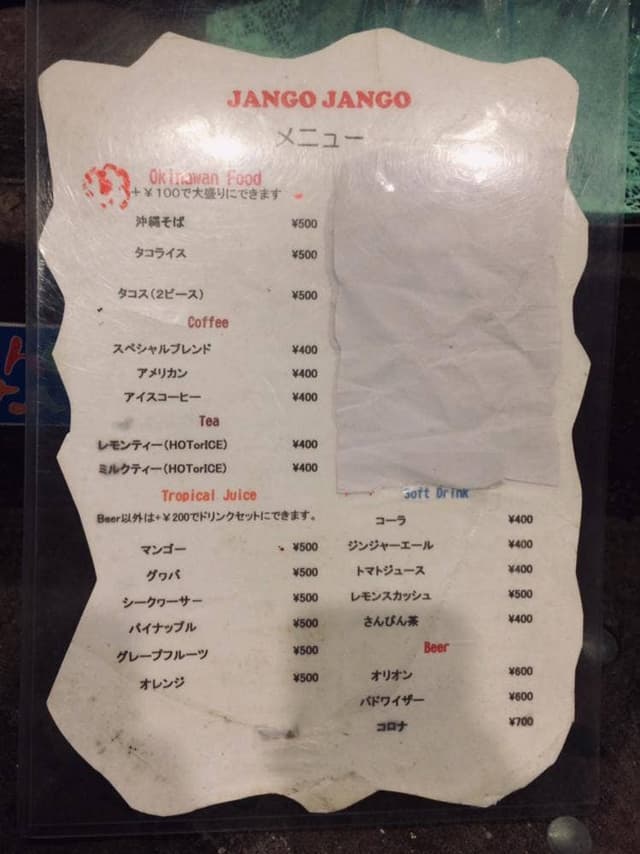 JANGO JANGO
メニュー
Okinawan Food
+￥100で大盛りにできます
沖縄そば ¥500
タコライス ¥500
タコス(2ピース) ¥500
Coffee
スペシャルブレンド ¥400
アメリカン ¥400
アイスコーヒー ¥400
Tea
レモンティー(HOTorICE) ¥400
ミルクティー(HOTorICE) ¥400
Tropical Juice
Beer以外は+￥200でドリンクセットにできます。
マンゴー ¥500
グヮバ ¥500
シークヮーサー ¥500
パイナップル ¥500
グレープフルーツ ¥500
オレンジ ¥500
Soft Drink
コーラ ¥400
ジンジャーエール ¥400
トマトジュース ¥400
レモンスカッシュ ¥500
さんぴん茶 ¥400
Beer
オリオン ¥600
バドワイザー ¥600
コロナ ¥700